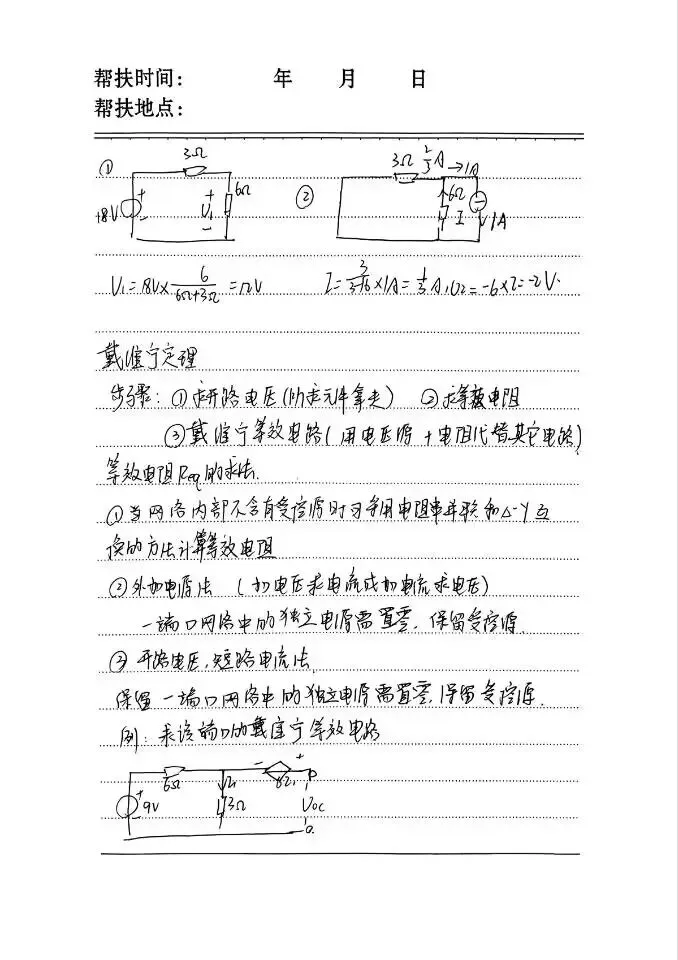 帮扶时间： 年 月 日
帮扶地点：
① 3Ω 6Ω 18V + - + U₁ -
② 3Ω 2/3A →1A 6Ω I 1A
U₁=18V×6/(6Ω+3Ω)=12V I=3/(3+6)×1A=1/3A,U₂=-6×I=-2V.
戴维宁定理
步骤：①求开路电压(所求元件拿走) ②求等效电阻
③戴维宁等效电路(用电压源+电阻代替其它电路)
等效电阻Req的求法.
①当网络内部不含有受控源时可采用电阻串并联和△-Y互
换的方法计算等效电阻
②外加电源法 (加电压求电流或加电流求电压)
一端口网络中的独立电源需置零，保留受控源.
③开路电压,短路电流法
保留一端口网络中的独立电源需置零,保留受控源.
例：求该端口的戴维宁等效电路
6Ω - + 6I₁ I₁ 3Ω + 9V - Uoc